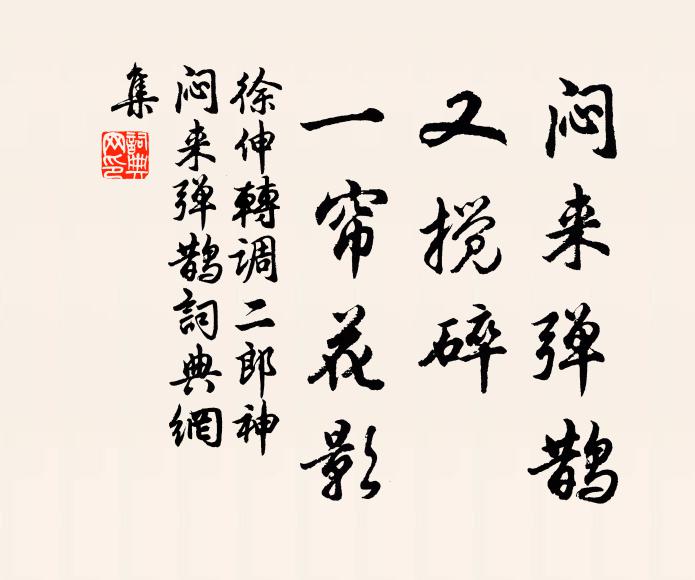 闷来弹鹊
又搅碎
一帘花影
徐伸轉调二郎神
闷来弹鹊詞典網
集
詞典
网印